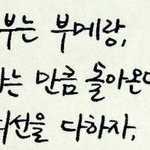 부는 부메랑,
는 만큼 돌아온다
선을 다하자.